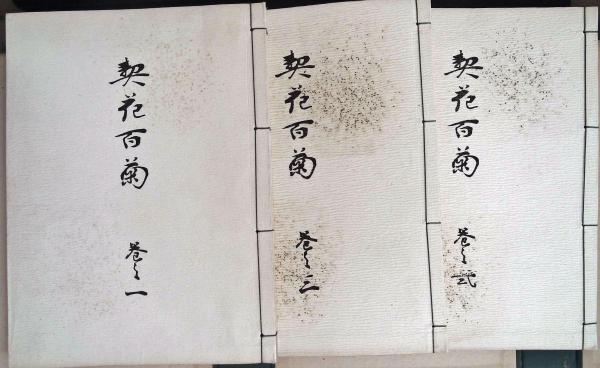 契花百菊
巻之一
契花百菊
巻之三
契花百菊
巻之弐